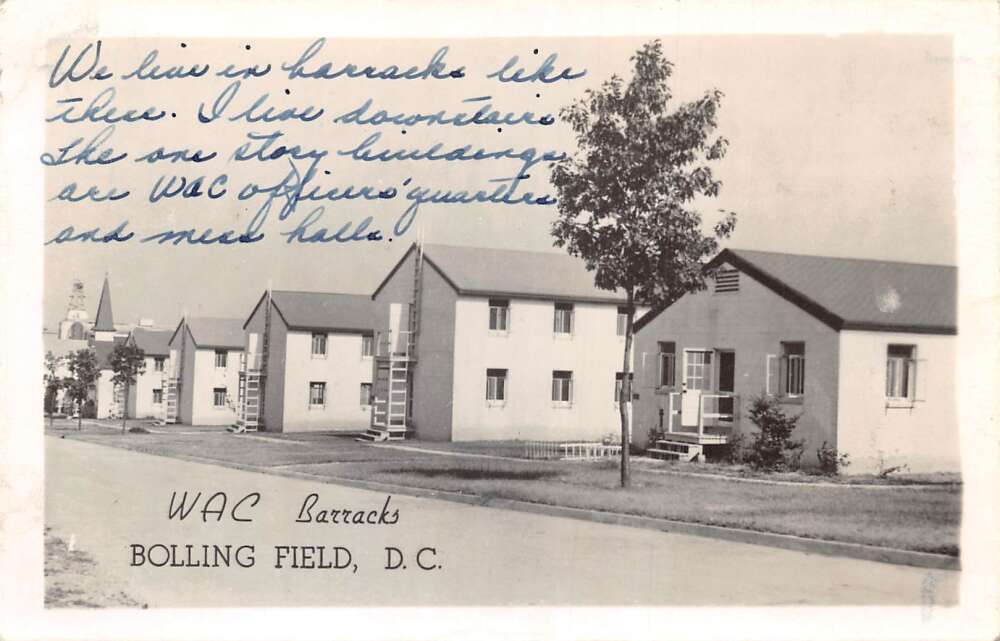 We live in barracks like
these. I live downstairs
The one story buildings
are WAC officers' quarters
and mess halls.
WAC Barracks
BOLLING FIELD, D.C.